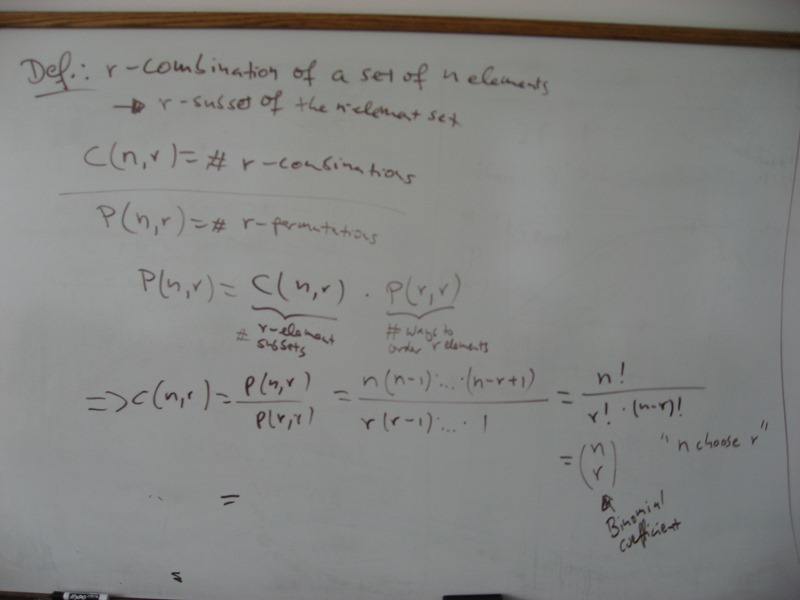 Def.: r-combination of a set of n elements
→ r-subset of the n-element set
C(n,r) = # r-combinations
P(n,r) = # r-permutations
P(n,r) = C(n,r) · P(r,r)
# r-element subsets
# ways to order r elements
=> C(n,r) = P(n,r) / P(r,r) = n(n-1)·...·(n-r+1) / r(r-1)·...·1 = n! / r!·(n-r)!
= (n r) "n choose r"
Binomial
coefficient
=